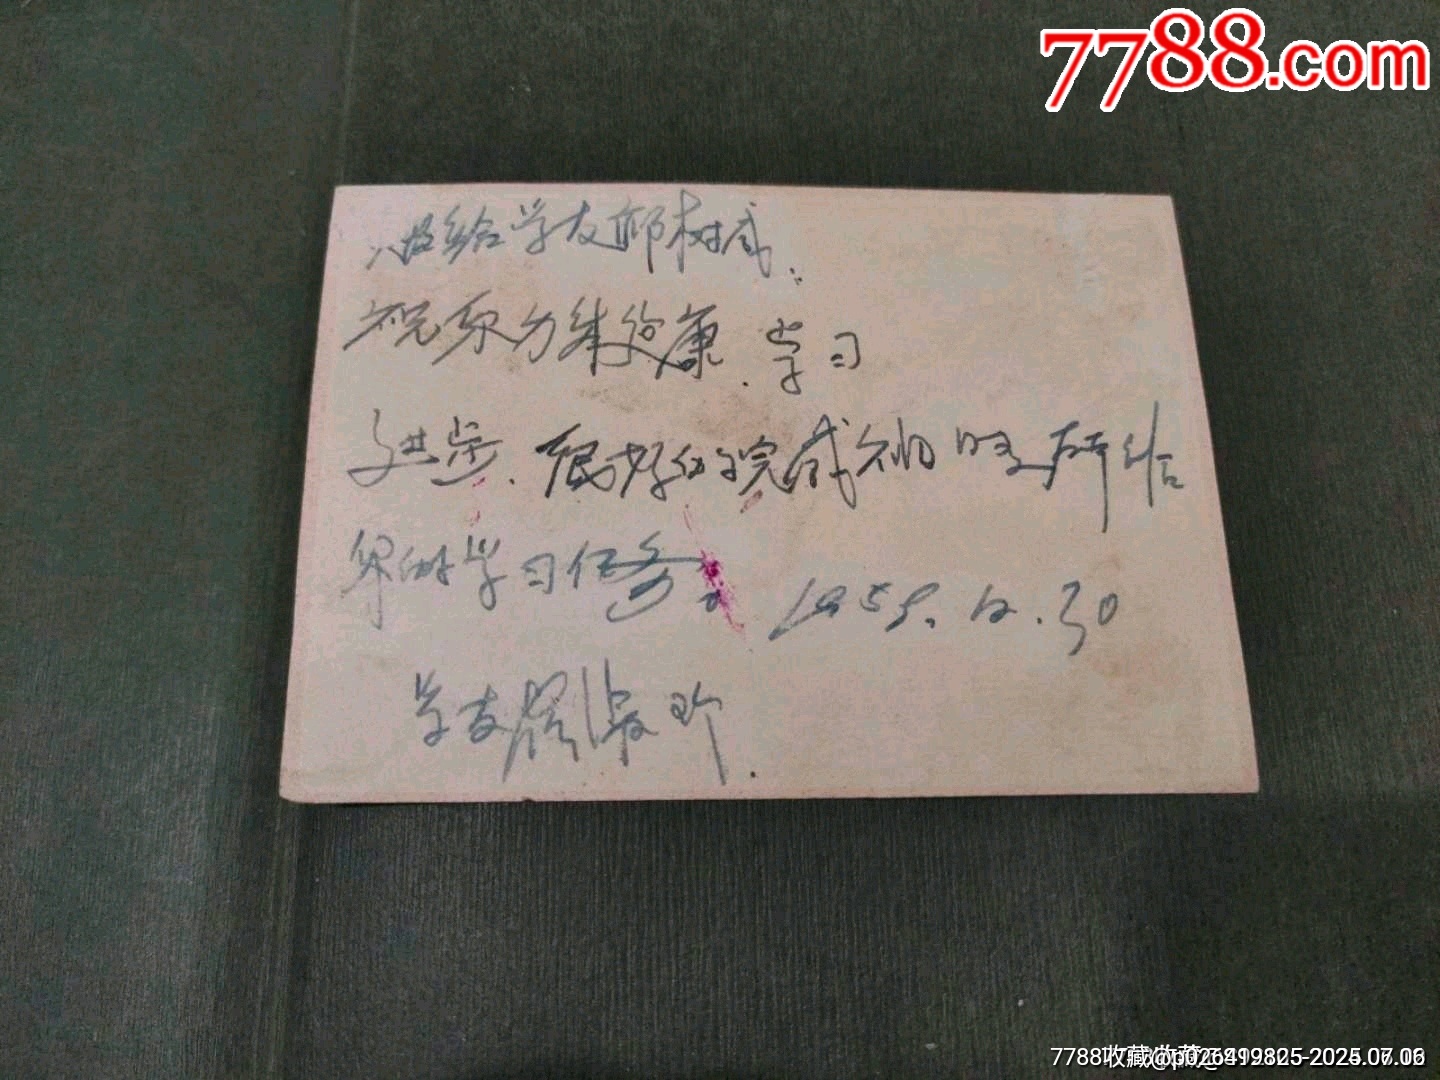 7788.com
给学友邱树威：
祝你身体健康、学习
进步、很好的完成祖国所给
你的学习任务。 1959.12.30
学友 淑珍.
7788收藏